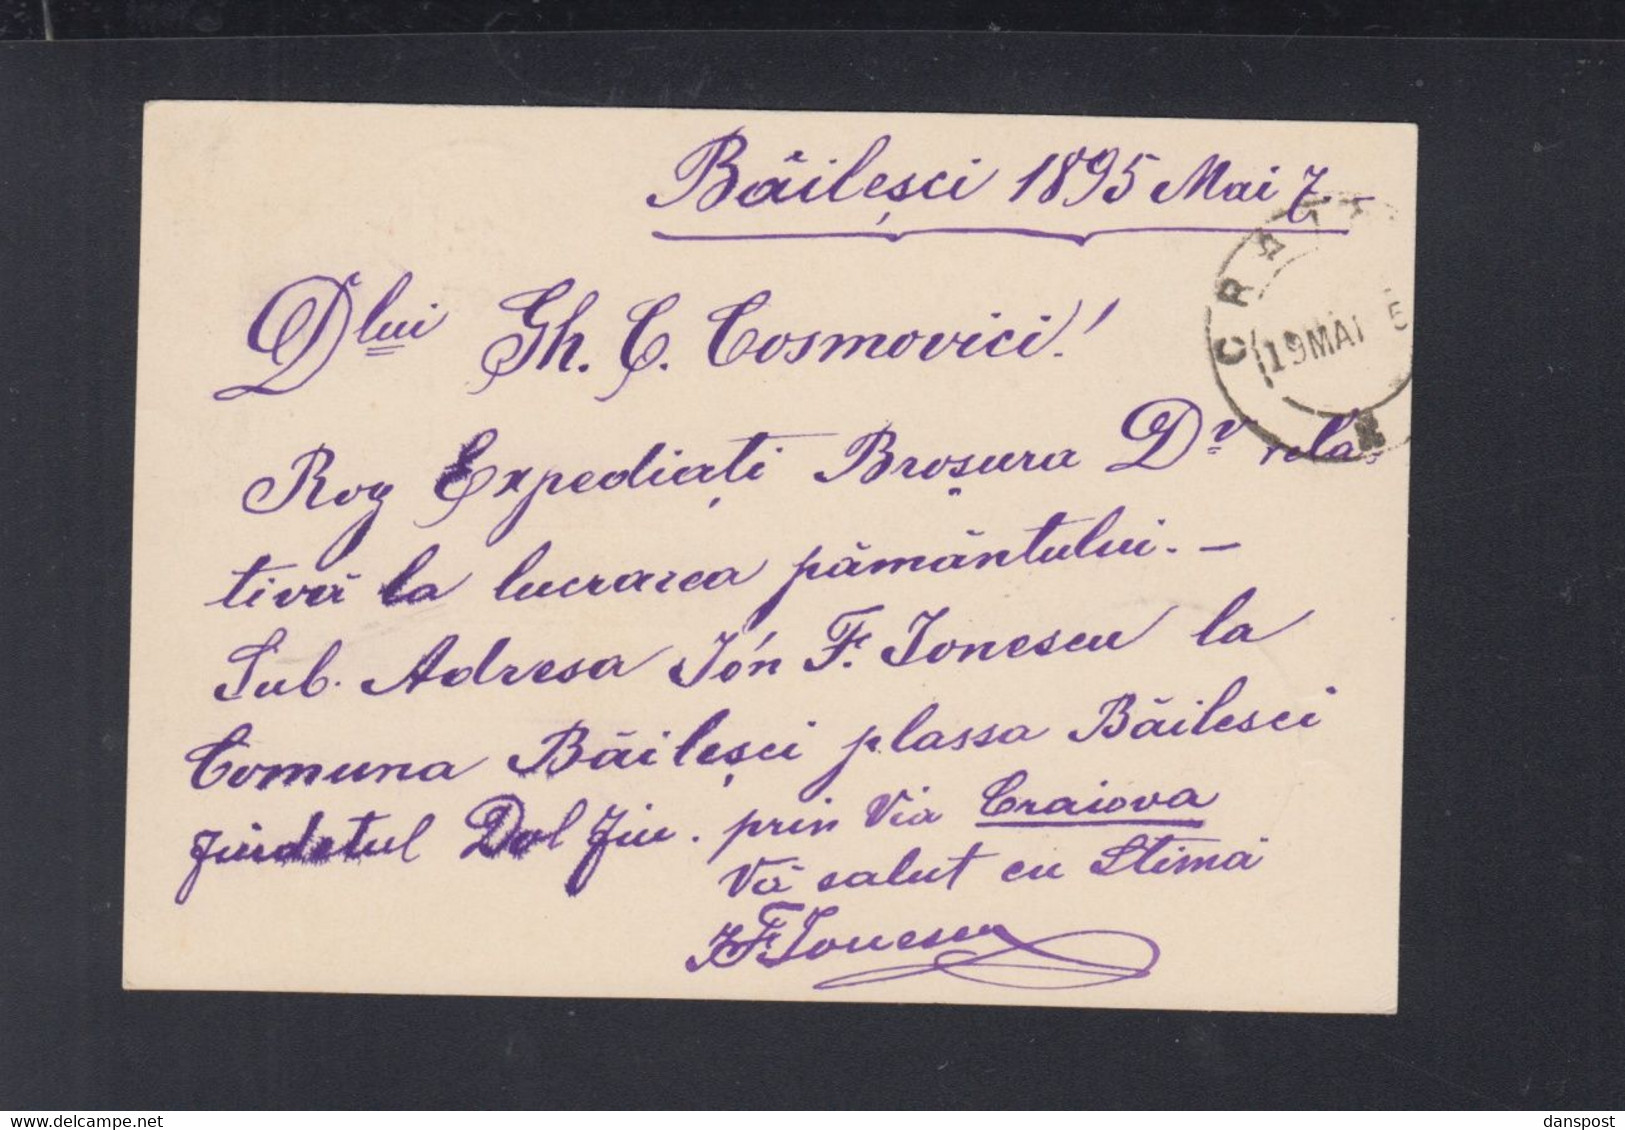 Băilești 1895 Mai 7.-
Dlui Gh. C. Cosmovici!
Rog Expediați Broșura Dv rela-
tivă la lucrarea pământului. -
Sub. Adresa Ión F. Ionescu la
Comuna Băileșci plassa Băilesci
Judetul Dol Jiu. prin Via Craiova
Vă salut cu Stimă
IF Ionescu
19 MAI 5
danspost